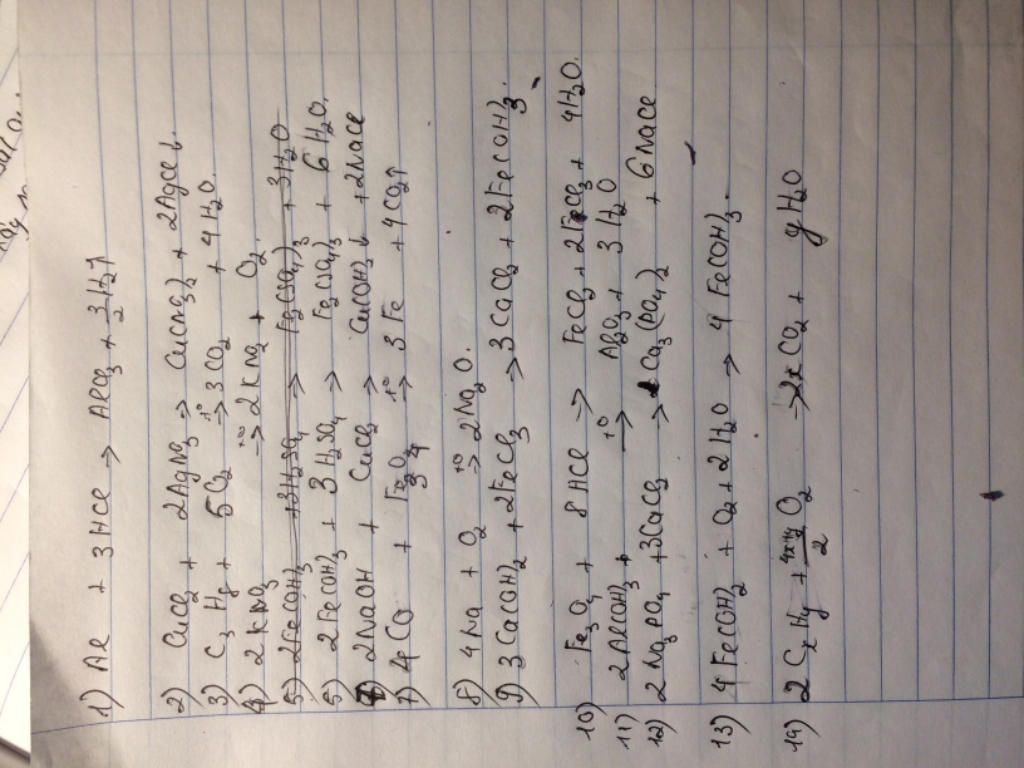 1) Al + 3HCl → AlCl3 + 3/2 H2↑
2) CuCl2 + 2AgNO3 → Cu(NO3)2 + 2AgCl↓.
3) C3H8 + 5O2 →t° 3CO2 + 4H2O.
4) 2KNO3 →t° 2KNO2 + O2.
5) 2Fe(OH)3 + 3H2SO4 → Fe2(SO4)3 + 3H2O
5) 2Fe(OH)3 + 3H2SO4 → Fe2(SO4)3 + 6H2O.
2NaOH + CuCl2 → Cu(OH)2↓ + 2NaCl
7) 4CO + Fe3O4 →t° 3Fe + 4CO2↑
8) 4Na + O2 →t° 2Na2O.
9) 3Ca(OH)2 + 2FeCl3 → 3CaCl2 + 2Fe(OH)3.
10) Fe3O4 + 8HCl → FeCl2 + 2FeCl3 + 4H2O.
11) 2Al(OH)3 →t° Al2O3 + 3H2O
12) 2Na3PO4 + 3CaCl2 → Ca3(PO4)2 + 6NaCl
13) 4Fe(OH)2 + O2 + 2H2O → 4Fe(OH)3.
14) 2CxHy + O2 → 2xCO2 + yH2O